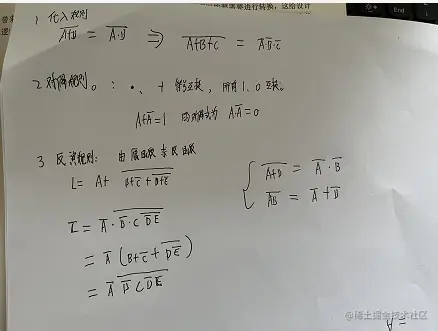 1 代入规则
$\overline{A+B} = \overline{A}\cdot\overline{B} \Rightarrow \overline{A+B+C} = \overline{A}\cdot\overline{B}\cdot\overline{C}$
2 对偶规则。: ·、+ 符号互换,所有 1、0 互换。
$A+\overline{A}=1$ 的对偶式为 $A\cdot\overline{A}=0$
3 反演规则: 由原函数求反函数
$L = A+\overline{B+\overline{C}+\overline{D+E}}$
$\overline{A+B} = \overline{A}\cdot\overline{B}$
$\overline{AB} = \overline{A}+\overline{B}$
$\overline{L} = \overline{A}\cdot\overline{\overline{B}\cdot C\,\overline{\overline{D}\,\overline{E}}}$
$= \overline{A}\,(B+\overline{C}+\overline{D}\,\overline{E})$
$= \overline{A}\,\overline{\overline{B}\,C\,\overline{\overline{D}\,\overline{E}}}$
= A
@稀土掘金技术社区